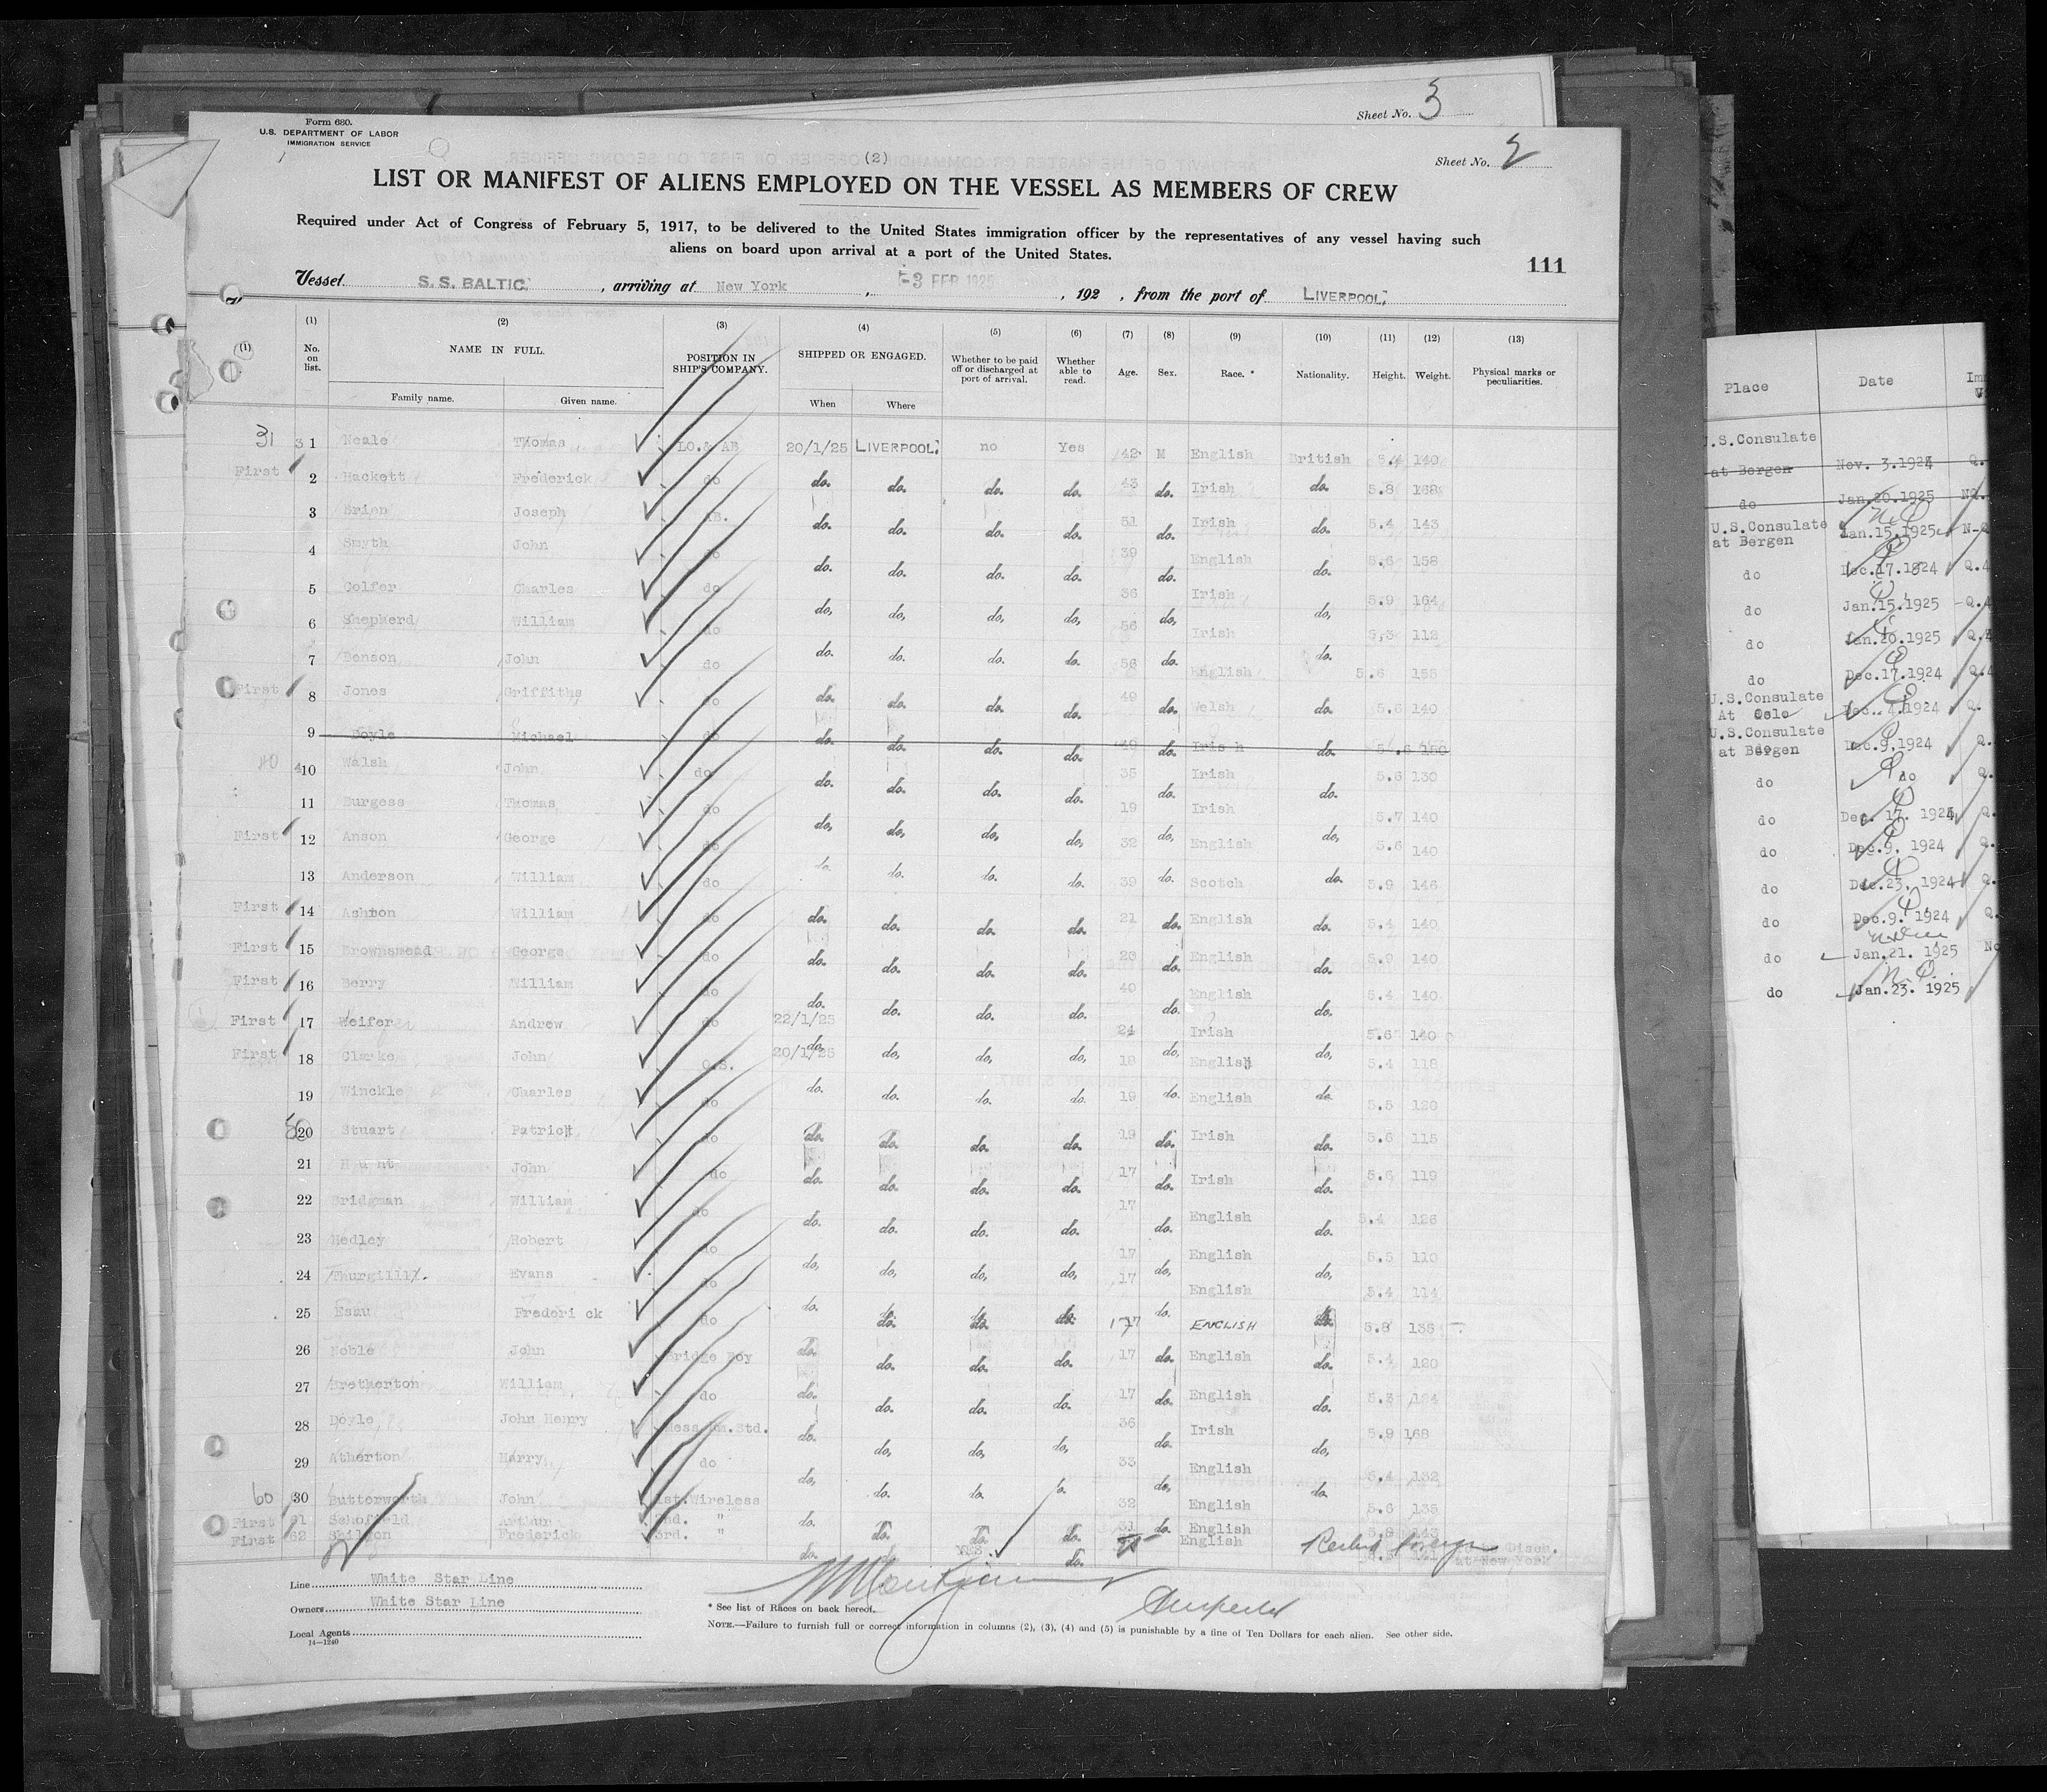 Sheet No. 3
Form 680.
U.S. DEPARTMENT OF LABOR
IMMIGRATION SERVICE
(2)
Sheet No. 2
LIST OR MANIFEST OF ALIENS EMPLOYED ON THE VESSEL AS MEMBERS OF CREW
Required under Act of Congress of February 5, 1917, to be delivered to the United States immigration officer by the representatives of any vessel having such
aliens on board upon arrival at a port of the United States.
111
Vessel S. S. BALTIC, arriving at New York, -3 FEB 1925, 192 , from the port of LIVERPOOL.
(1) (2) (3) (4) (5) (6) (7) (8) (9) (10) (11) (12) (13)
No. on list. NAME IN FULL. POSITION IN SHIP'S COMPANY. SHIPPED OR ENGAGED. Whether to be paid off or discharged at port of arrival. Whether able to read. Age. Sex. Race. * Nationality. Height. Weight. Physical marks or peculiarities.
Family name. Given name. When Where
31 31 Neale Thomas LO.& AB 20/1/25 LIVERPOOL. no Yes 42 M English British 5.4 140
First 2 Hackett Frederick do do. do. do. do. 43 do. Irish do. 5.8 168
3 Brien Joseph AB. do. do. do. do. 51 do. Irish do. 5.4 143
4 Smyth John do do. do. do. do. 39 do. English do. 5.6 158
5 Colfer Charles do do, do, do, do, 36 do, Irish do, 5.9 164
6 Shepherd William do do. do. do. do. 56 do. Irish do. 5,3 112
7 Benson John do 56 English 5.6 155
First 8 Jones Griffiths do do. do. do. do. 49 do. Welsh do. 5.6 140
9 Doyle Michael do do. do. do. do. 49 do. Irish do. 5.6 150
40 410 Walsh John do do. do. do. do. 35 do. Irish do. 5.6 130
11 Burgess Thomas do do, do, do, do, 19 do, Irish do, 5.7 140
First 12 Anson George do do. do. do. do. 32 do. English do. 5.6 140
13 Anderson William do 39 Scotch 5.9 146
First 14 Ashton William do do. do. do. do. 21 do. English do. 5.4 140
First 15 Brownsmead George do do. do. do. do. 23 do. English do. 5.9 140
First 16 Berry William do do. do. do. do. 40 do. English do. 5.4 140
First 17 Weifer Andrew do 22/1/25 do, do, do, 24 do, Irish do, 5.6 140
First 18 Clarke John O.S. 20/1/25 do. do. do. 18 do. English do. 5.4 118
19 Winckle Charles do 19 English 5.5 126
50 20 Stuart Patrick do do. do. do. do. 19 do. Irish do. 5.6 115
21 Hunt John do do. do. do. do. 17 do. Irish do. 5.6 119
22 Bridgman William do do. do. do. do. 17 do. English do. 5.4 126
23 Hedley Robert do do, do, do, do, 17 do, English do, 5.5 110
24 Thurgill Evans do do. do. do. do. 17 do. English do. 5.4 114
25 Esau Frederick do 17 ENGLISH 5.8 135
26 Noble John Bridge Boy do. do. do. do. 17 do. English do. 5.4 120
27 Bretherton William do do. do. do. do. 17 do. English do. 5.3 124
28 Doyle John Henry Mess Rm.Std. do. do, do, do, 36 do. Irish do, 5.9 168
29 Atherton Harry do do, do. do. do. 33 do, English do. 5.4 132
60 30 Butterworth John 1st.Wireless do. 32 do. English 5.6 135
First 61 Schofield Arthur 2nd. " do. do. do. do. 31 English 5.8 143
First 62 Frederick 3rd. " English Disch.
at New York
Line White Star Line
Owners White Star Line
Local Agents
14—1240
* See list of Races on back hereof.
NOTE.—Failure to furnish full or correct information in columns (2), (3), (4) and (5) is punishable by a fine of Ten Dollars for each alien. See other side.
Place Date
U.S.Consulate
at Bergen Nov. 3.1924 Q.
do Jan.20.1925 NQ.
U.S.Consulate
at Bergen Jan.15.1925 N-Q
do Dec.17.1924 Q.4
do Jan.15.1925 Q.4
do Jan.20.1925 Q.4
do Dec.17.1924 Q.4
U.S.Consulate
At Oslo Dec. 4.1924 Q.
U.S.Consulate
at Bergen Dec.9,1924 Q.
do do Q.
do Dec. 17. 1924 Q.
do Dec.9. 1924 Q.
do Dec.23. 1924 Q.
do Dec.9. 1924 Q.
do Jan.21. 1925 No
do Jan.23. 1925